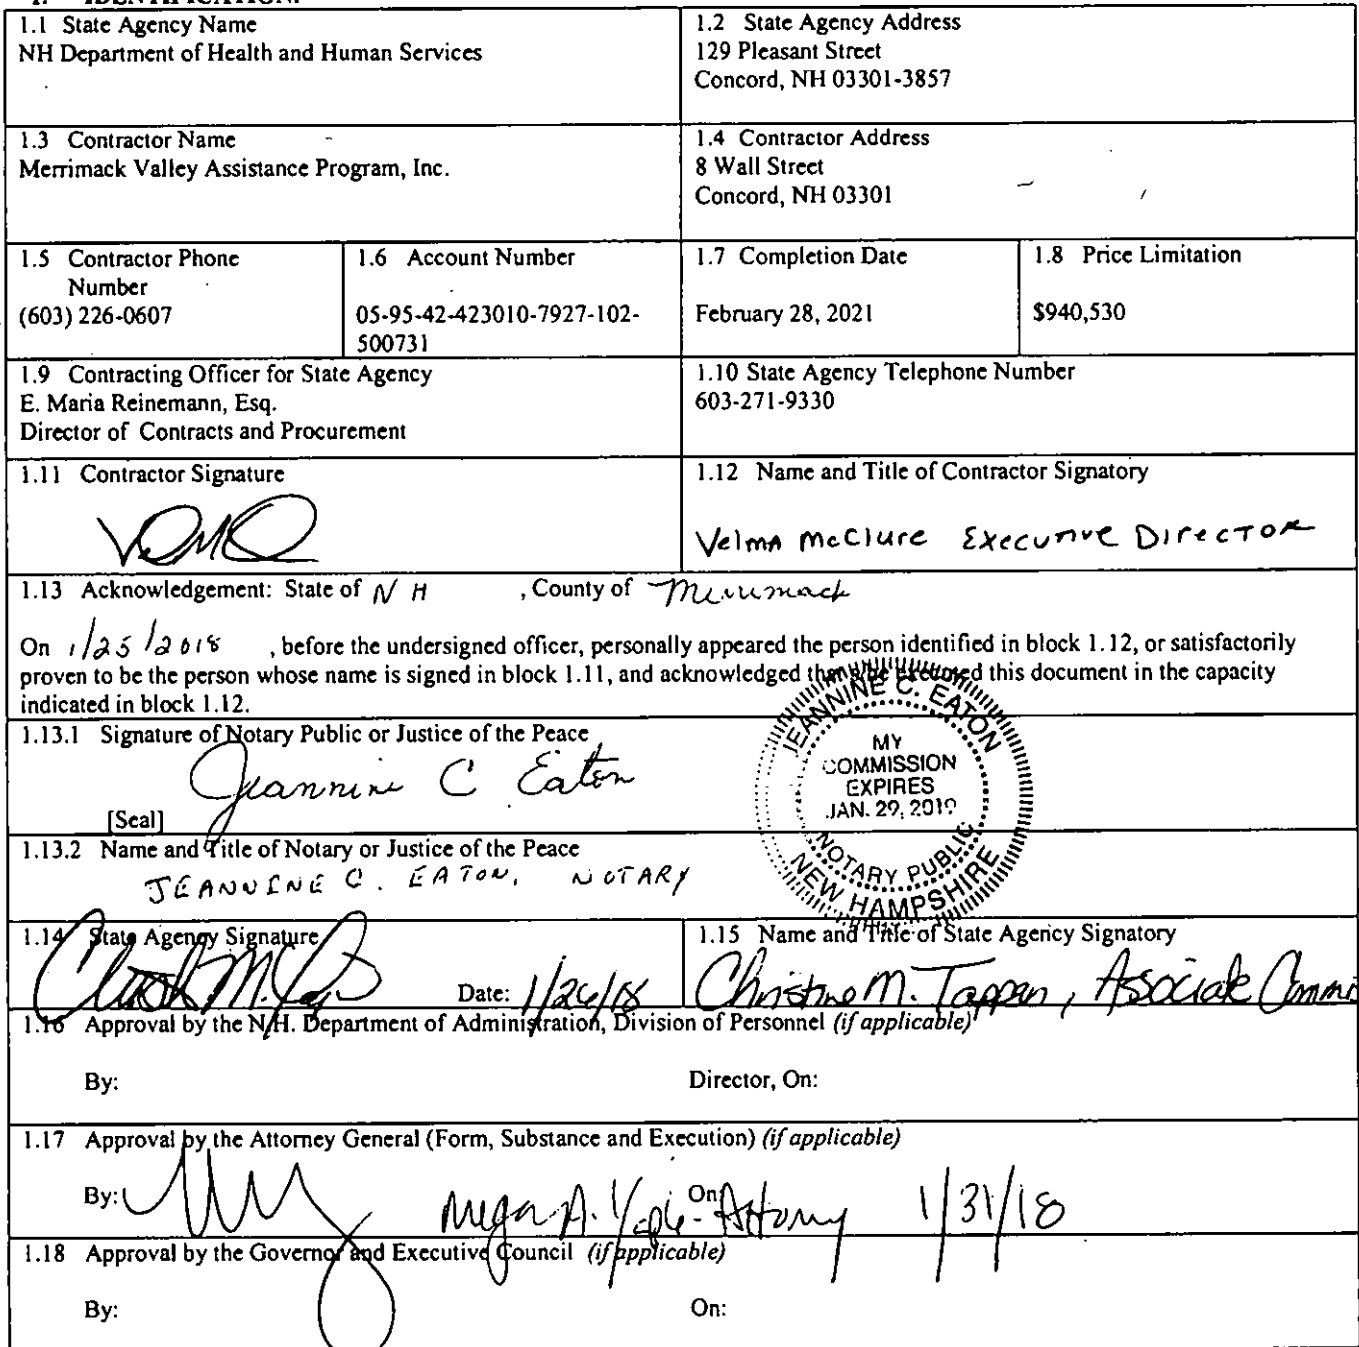 1. IDENTIFICATION.
1.1 State Agency Name
NH Department of Health and Human Services
1.2 State Agency Address
129 Pleasant Street
Concord, NH 03301-3857
1.3 Contractor Name
Merrimack Valley Assistance Program, Inc.
1.4 Contractor Address
8 Wall Street
Concord, NH 03301
1.5 Contractor Phone
Number
(603) 226-0607
1.6 Account Number
05-95-42-423010-7927-102-
500731
1.7 Completion Date
February 28, 2021
1.8 Price Limitation
$940,530
1.9 Contracting Officer for State Agency
E. Maria Reinemann, Esq.
Director of Contracts and Procurement
1.10 State Agency Telephone Number
603-271-9330
1.11 Contractor Signature
1.12 Name and Title of Contractor Signatory
Velma McClure Executive Director
1.13 Acknowledgement: State of NH , County of Merrimack
On 1/25/2018 , before the undersigned officer, personally appeared the person identified in block 1.12, or satisfactorily
proven to be the person whose name is signed in block 1.11, and acknowledged that s/he executed this document in the capacity
indicated in block 1.12.
1.13.1 Signature of Notary Public or Justice of the Peace
Jeannine C Eaton
[Seal]
JEANNINE C. EATON
MY
COMMISSION
EXPIRES
JAN. 29, 2019
NOTARY PUBLIC
NEW HAMPSHIRE
1.13.2 Name and Title of Notary or Justice of the Peace
JEANNINE C. EATON, NOTARY
1.14 State Agency Signature
Date: 1/26/18
1.15 Name and Title of State Agency Signatory
Christine M. Tappan, Associate Commis
1.16 Approval by the N.H. Department of Administration, Division of Personnel (if applicable)
By:
Director, On:
1.17 Approval by the Attorney General (Form, Substance and Execution) (if applicable)
By: Megan A. - Attorney On: 1/31/18
1.18 Approval by the Governor and Executive Council (if applicable)
By:
On: